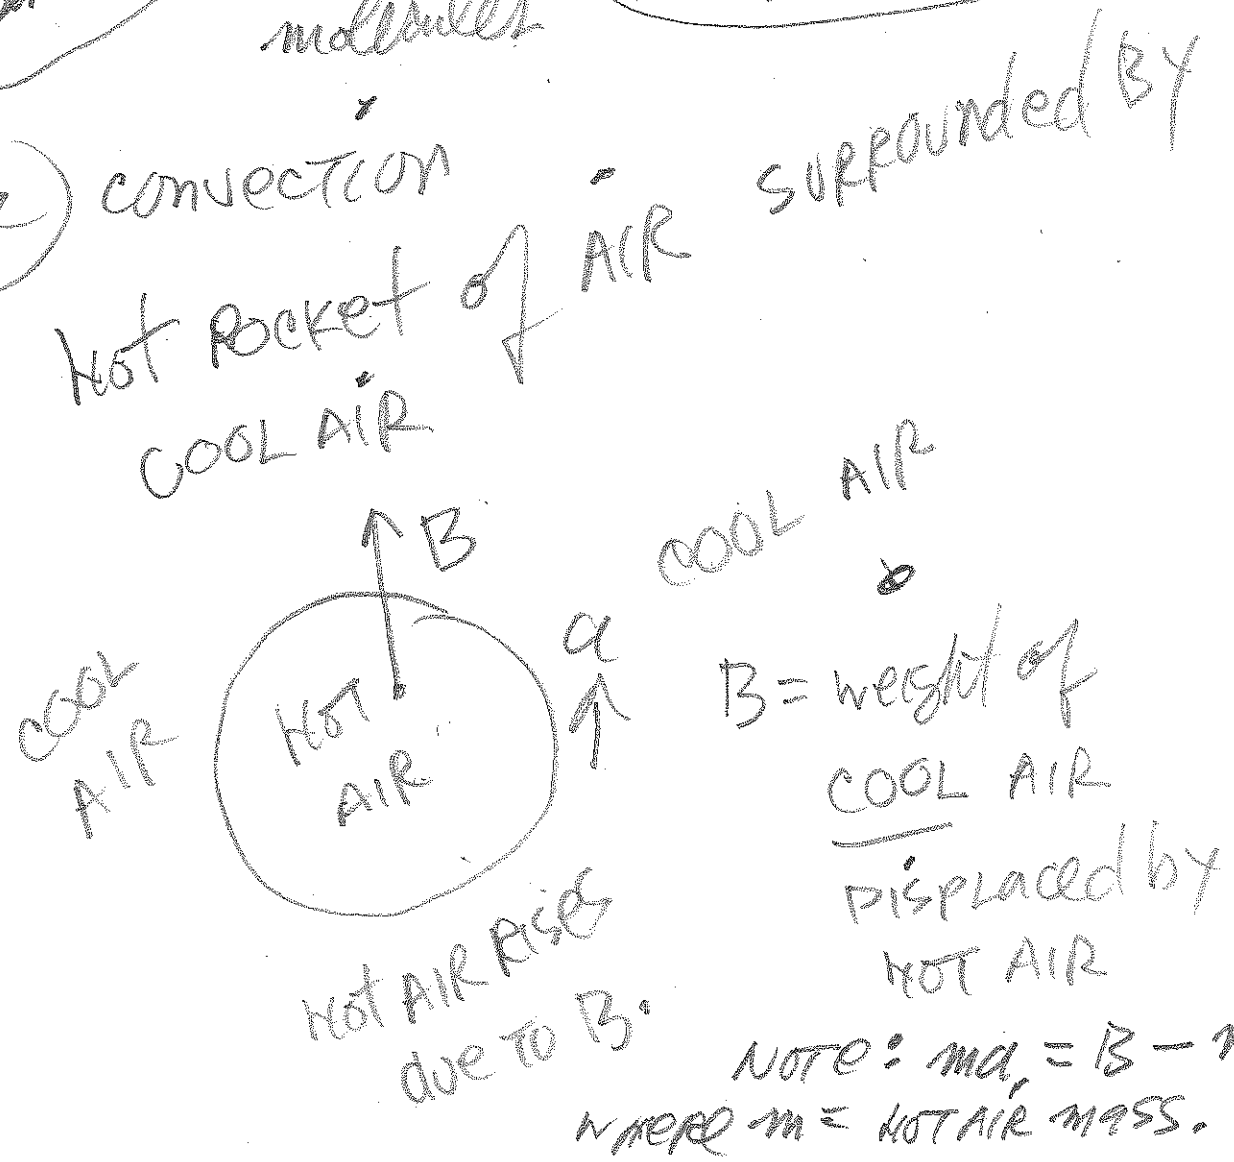 molecules
convection
Hot Pocket of AIR surrounded BY
COOL AIR
COOL AIR
B
a
COOL
AIR
HOT
AIR
B = weight of
COOL AIR
Displaced by
HOT AIR
Hot AIR Rises
due to B.
NOTE: ma = B -
where m = HOT AIR mass.